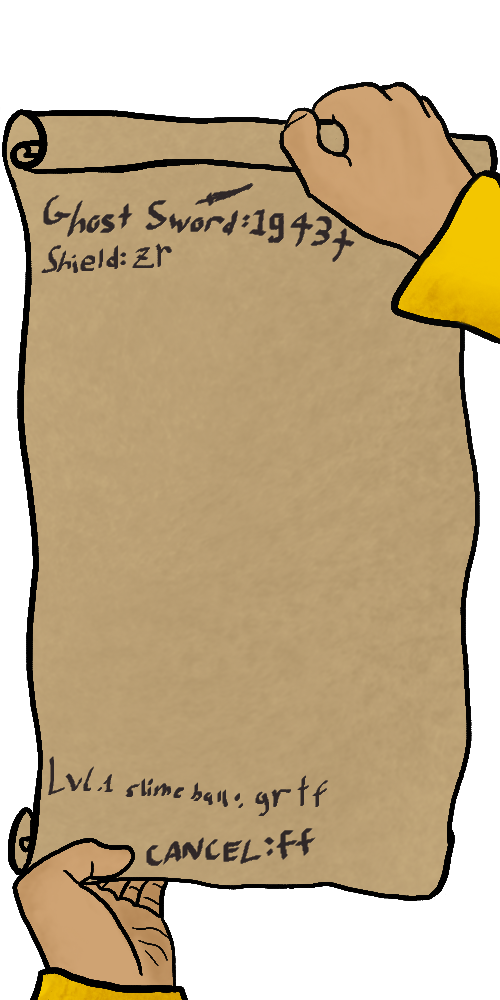 Ghost Sword:1943t
Shield: zr
Lvl.1 slime ball: grtf
CANCEL:ff